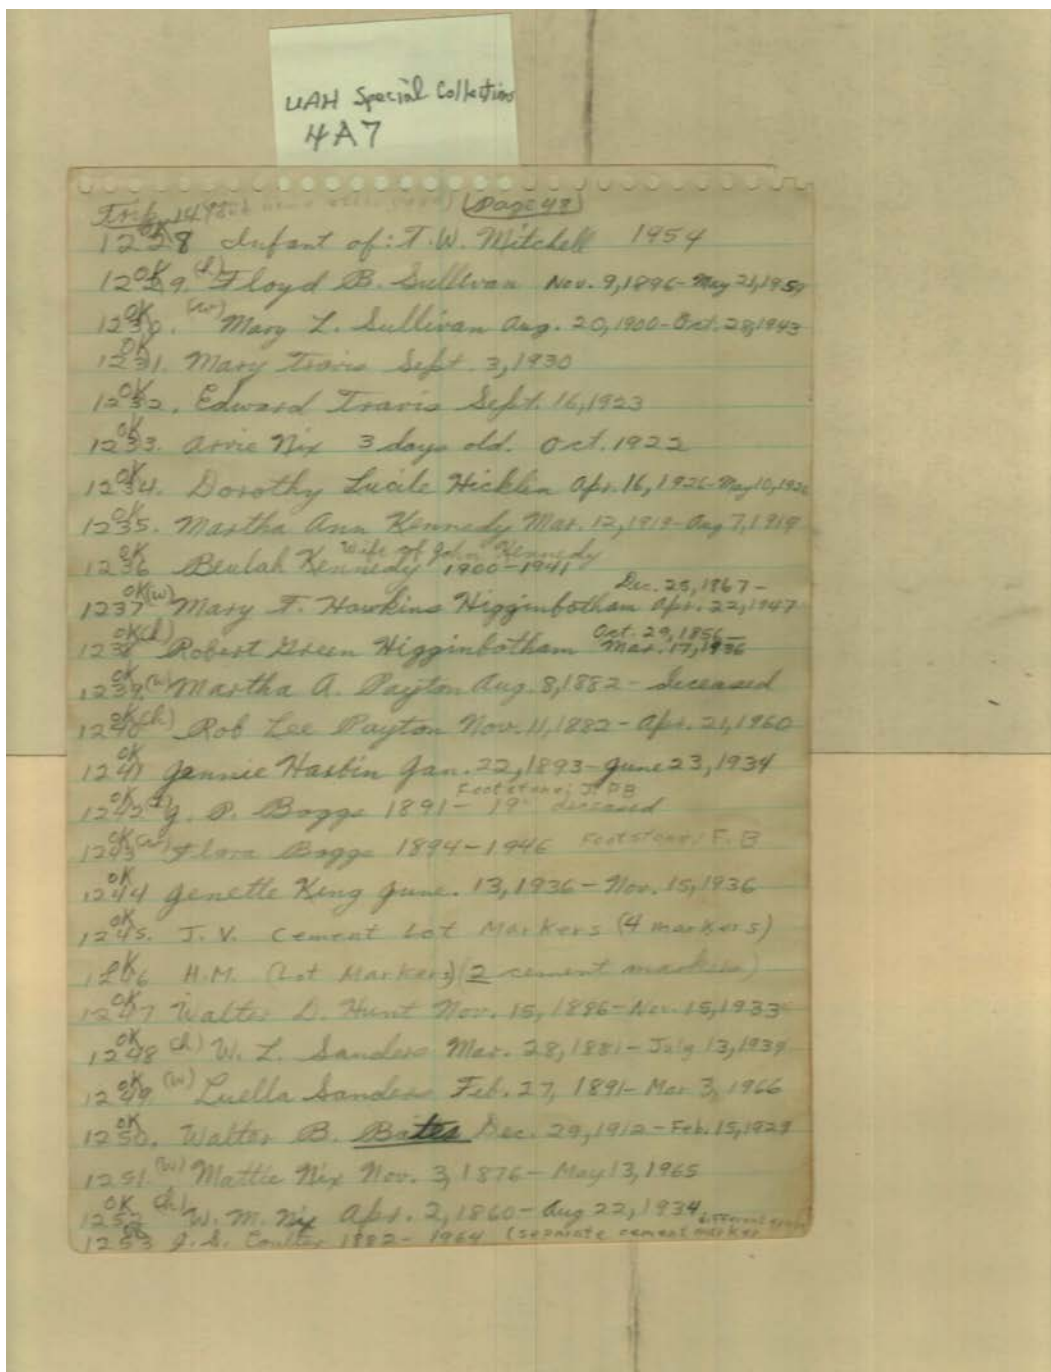 UAH Special Collections
4A7
Trip 149 Page 48
OK
1228 Infant of: T.W. Mitchell 1954
OK
1229. (h) Floyd B. Sullivan Nov. 9, 1896 - May 21, 1959
OK
1230. (w) Mary L. Sullivan Aug. 20, 1900 - Oct. 28, 1943
OK
1231. Mary Travis Sept. 3, 1930
OK
1232. Edward Travis Sept. 16, 1923
OK
1233. Arvie Nix 3 days old. Oct. 1922
OK
1234. Dorothy Lucile Hicklen Apr. 16, 1926 - May 10, 1926
OK
1235. Martha Ann Kennedy Mar. 12, 1919 - Aug 7, 1919
OK Wife of John Kennedy
1236 Beulah Kennedy 1900-1941
OK (w) Dec. 25, 1867 -
1237 Mary F. Hawkins Higginbotham Apr. 22, 1947
OK (h) Oct. 29, 1856 -
1238 Robert Green Higginbotham Mar. 17, 1936
OK
1239. (w) Martha A. Payton Aug. 8, 1882 - deceased
OK (h)
1240 Rob Lee Payton Nov. 11, 1882 - Apr. 21, 1960
OK
1241 Jennie Hasbin Jan. 22, 1893 - June 23, 1934
OK Footstone: J.P.B
1242 (h) J. P. Boggs 1891 - 19 deceased
OK
1243 (w) Flora Boggs 1894-1946 Footstone: F. B
OK
1244 Genette King June. 13, 1936 - Nov. 15, 1936
OK
1245. J. V. Cement Lot Markers (4 markers)
OK
1246 H.M. (Lot Markers) (2 cement markers)
OK
1247 Walter D. Hunt Nov. 15, 1896 - Nov. 15, 1933
OK
1248 (h) W. L. Sanders Mar. 28, 1881 - July 13, 1939
OK
1249 (w) Luella Sanders Feb. 27, 1891 - Mar 3, 1966
OK
1250. Walter B. Bates Dec. 29, 1912 - Feb. 15, 1929
1251. (w) Mattie Nix Nov. 3, 1876 - May 13, 1965
OK (h)
1252 W. M. Nix Apr. 2, 1860 - Aug 22, 1934
OK different
1253 J. S. Coulter 1882 - 1964 (separate cement marker